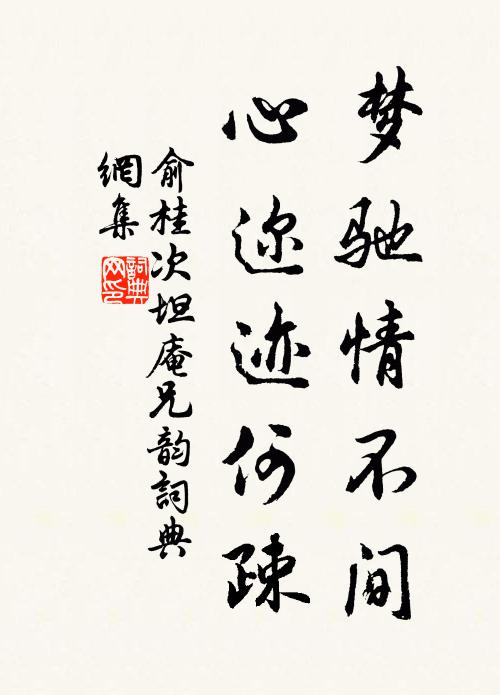 梦驰情不间
心迩迹何疎
俞桂次坦庵兄韵詞典
網集
詞典網印